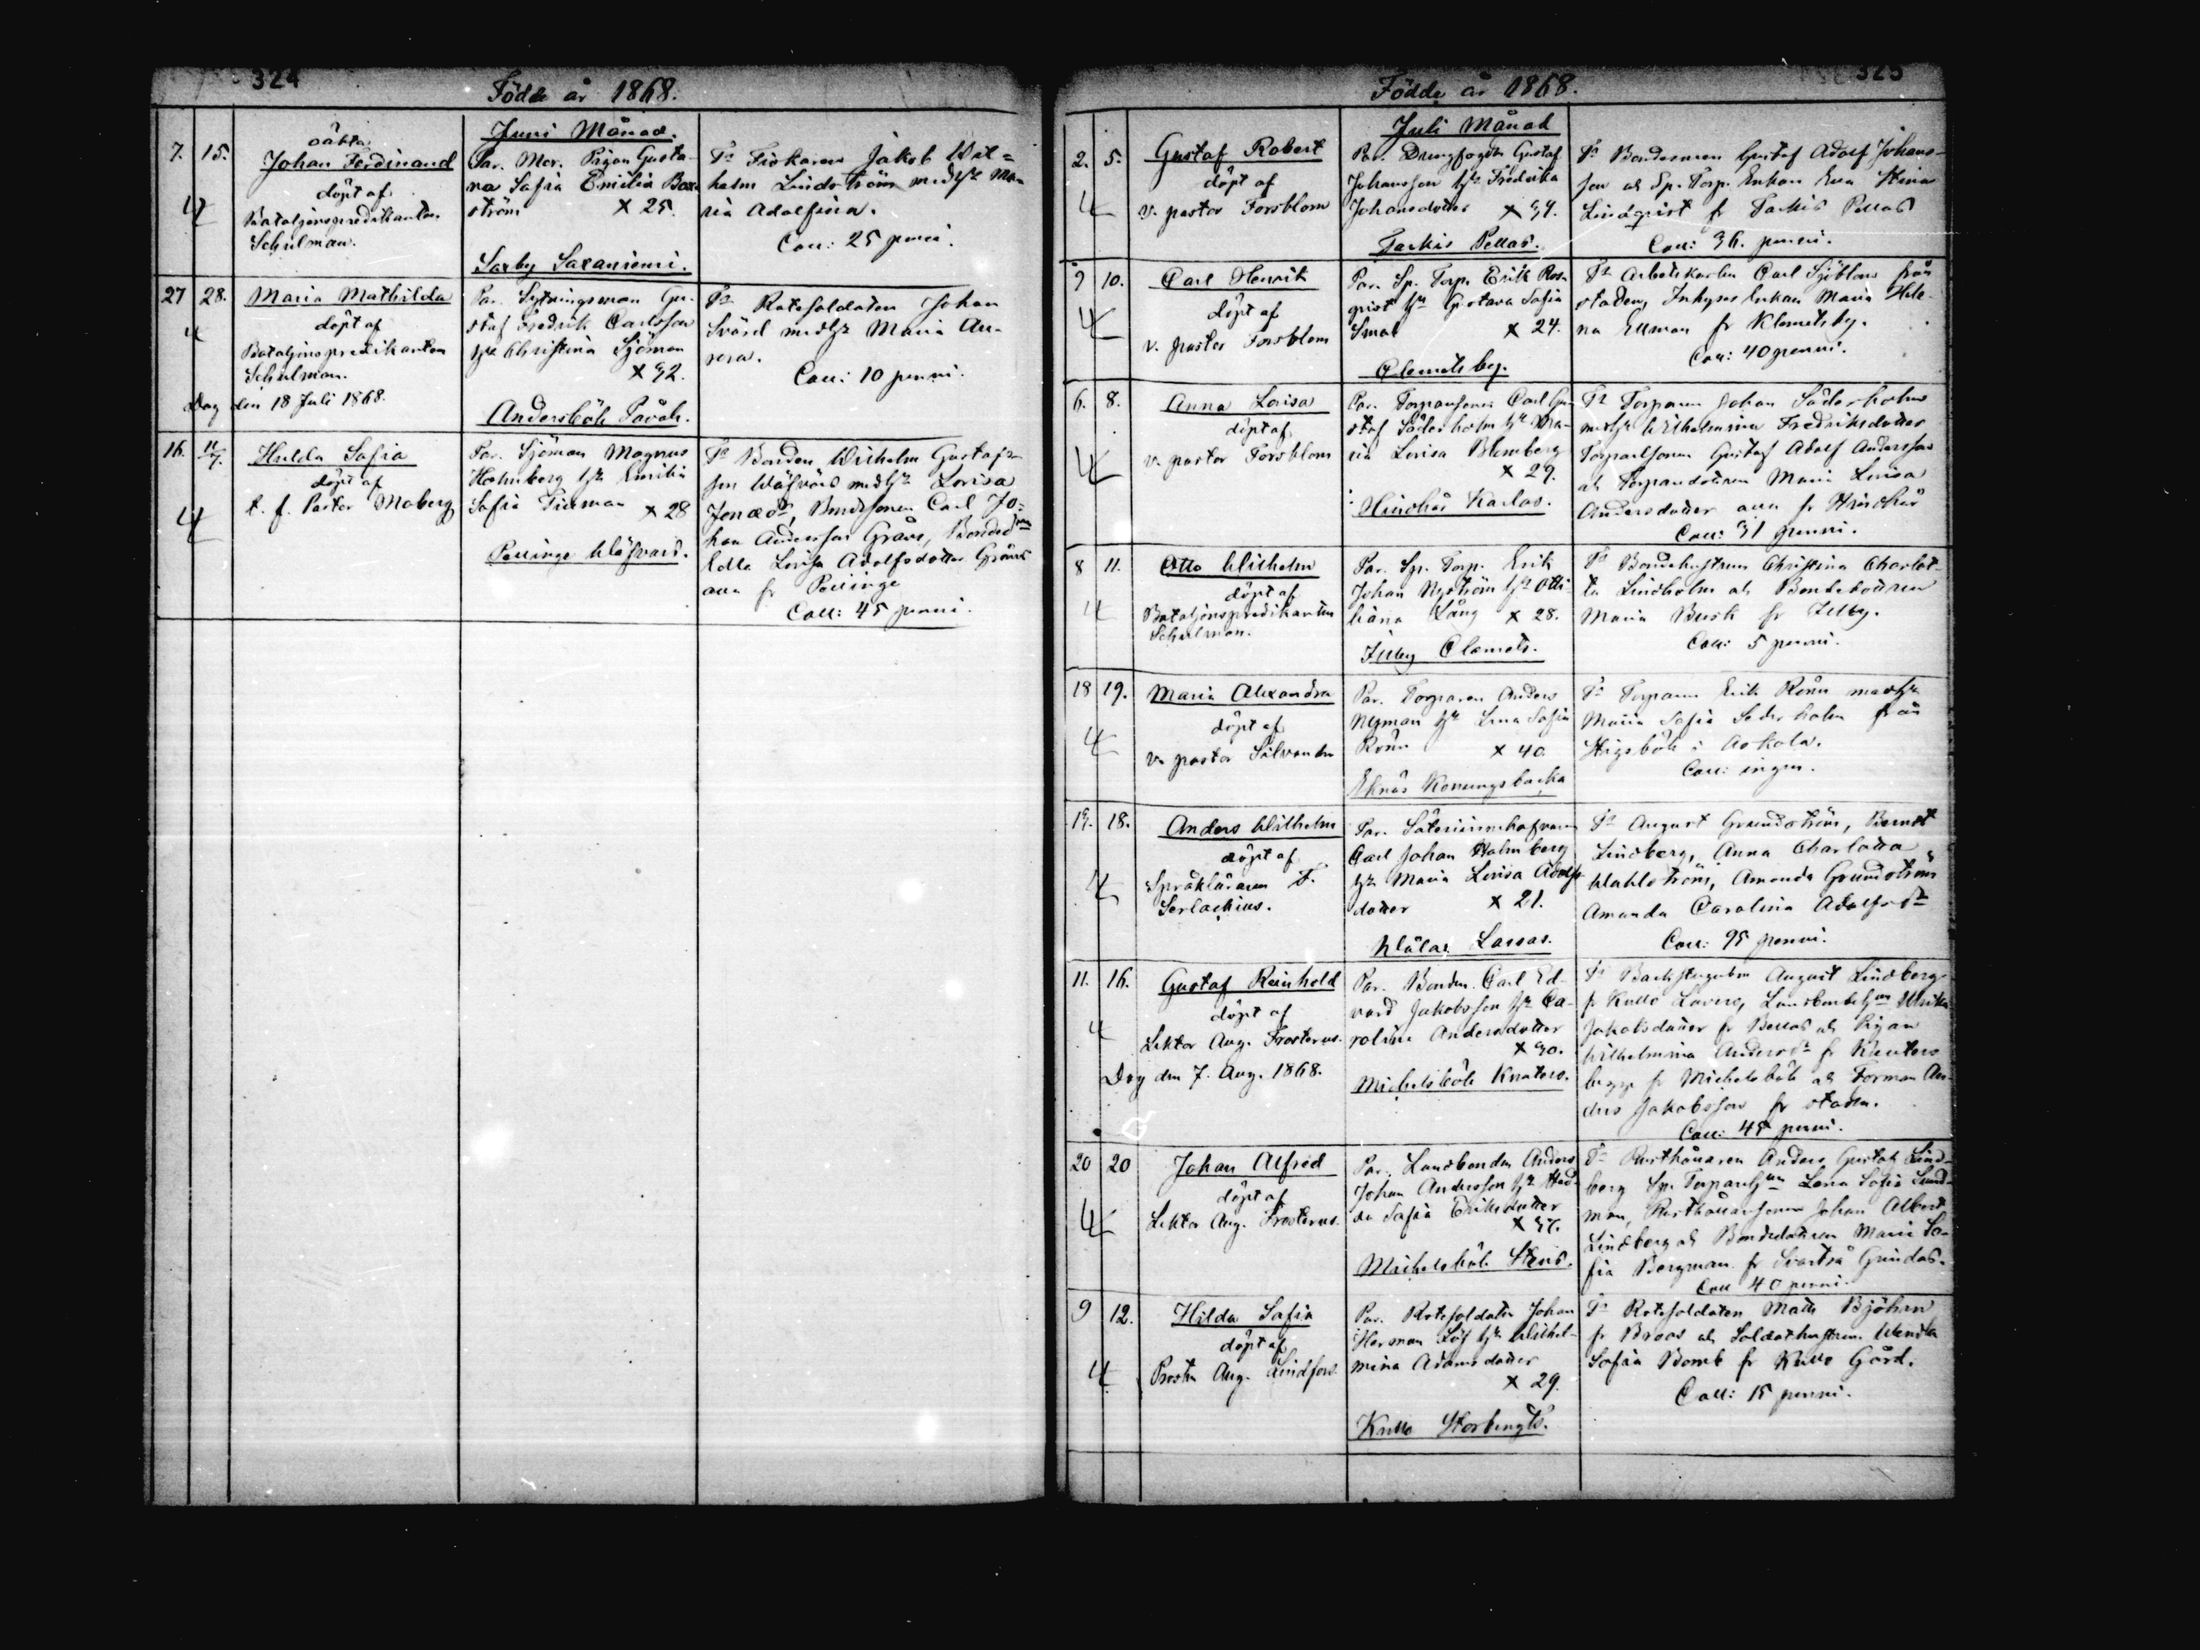 324
Födde år 1868.
Juni Månad.
7. 15. oäkta
Johan Ferdinand
döpt af
Bataljonspredikanten
Schulman.
Par. Mor. Pigan Gusta-
va Sofia Emilia Box-
ström X 25.
Saxby Saxaniemi.
Fiskaren Jakob Wil=
helm Lindström medh. Ma-
ria Adolfina.
Coll: 25 penni.
27 28. Maria Mathilda
döpt af
Bataljonspredikanten
Schulman.
Dog den 18 Juli 1868.
Par. Sytningsman Gu-
staf Fredrik Carlsson
Christina Sjöman
X 32.
Andersböle Paväls.
Rotesoldaten Johan
Svärd medh. Maria An-
Coll: 10 penni.
16. 11/7. Hulda Sofia
döpt af
t. f. Pastor Moberg
Par. Sjöman Magnus
Holmberg Emilia
Sofia X 28
Pellinge
Bonden Wilhelm Gustafs-
son medh. Lovisa
Bondesonen Carl Jo=
han Andersson
Edla Lovisa Adolfsdotter
alla fr Pellinge
Coll: 45 penni.
325
Födde år 1868.
Juli Månad
2. 5. Gustaf Robert
döpt af
v. pastor Forsblom
Par. Drengfogden Gustaf
Johansson Fredrika
Johansdotter X 34.
Tarkis Pellas.
Bondesonen Gustaf Adolf Johans-
son och Sp. Torp. Enkan Eva Stina
Lindqvist fr Tarkis Pellas
Coll: 36. penni.
9 10. Carl Henrik
döpt af
v. pastor Forsblom
Par. Sp. Torp. Erik Ros-
qvist Gustava Sofia
Smal X 24.
Clemetsby.
Arbetskarlen Carl Sjöblom från
staden, Inhyses Enkan Maria Hele-
na Ekman fr Klemetsby.
Coll: 40 penni.
6. 8. Anna Lovisa
döpt af
v. pastor Forsblom
Par. Torparsonen Carl Gu-
staf Söderholm Ma-
ria Lovisa Blomberg
X 29.
Hindhår Karlas.
Torparen Johan Söderholm
medh. Wilhelmina Fredriksdotter
Torparsonen Gustaf Adolf Andersson
och Torparedottren Maria Lovisa
Andersdotter alla fr Hindhår
Coll: 31 penni.
8 11. Otto Wilhelm
döpt af
Bataljonspredikanten
Schulman.
Par. Sp. Torp. Erik
Johan Nyström Otti-
liana Lång X 28.
Illby Clemets.
Bondehustrun Christina Charlot-
ta Lindholm och Bondedottren
Maria Busk fr Illby.
Coll: 5 penni.
18 19. Maria Alexandra
döpt af
v. pastor Silvander
Par. Torparen Anders
Nyman Lena Sofia
X 40
Eknäs Konungsbacka
Torparen Erik medh.
Maria Sofia Söderholm från
Stigsböle i Askola.
Coll: ingen.
19. 18. Anders Wilhelm
döpt af
Språkläraren F.
Serlachius.
Par.
Carl Johan Holmberg
Maria Lovisa Adolfs-
dotter X 21.
Wålax Lassas.
August Grundström, Berndt
Lindberg, Anna Charlotta
Wahlström, Amanda Grundström
Amanda Carolina Adolfsdr
Coll: 95 penni.
11. 16. Gustaf Reinhold
döpt af
Lektor Aug. Frosterus.
Dog den 7. Aug. 1868.
Par. Bonden Carl Ed-
vard Jakobsson Ca-
rolina Andersdotter
X 30.
Michelsböle Knuters.
August Lindberg
fr Kullo Ulrika
Jakobsdotter fr och Pigan
Wilhelmina Andersdr fr Knuters
fr Michelsböle och Forman An-
ders Jakobsson fr staden.
Coll: 45 penni.
20 20 Johan Alfred
döpt af
Lektor Aug. Frosterus.
Par. Landbonden Anders
Johan Andersson Hed-
da Sofia Eriksdotter
X 37.
Michelsböle Stens.
Rusthållaren Anders Gustaf Lind-
berg Sp. Lena Sofia Lund-
man, Rusthållarsonen Johan Albert
Lindberg och Bondedottren Maria So-
fia Bergman fr Svartså Grindas.
Coll 40 penni.
9 12. Hilda Sofia
döpt af
Prosten Aug. Lindfors.
Par. Rotesoldaten Johan
Herman Löf Wilhel-
mina Adamsdotter
X 29.
Kullo Storbengts.
Rotesoldaten Matts Björkman
fr och Soldathustrun Wendla
Sofia Bomb fr Kullo Gård.
Coll: 15 penni.